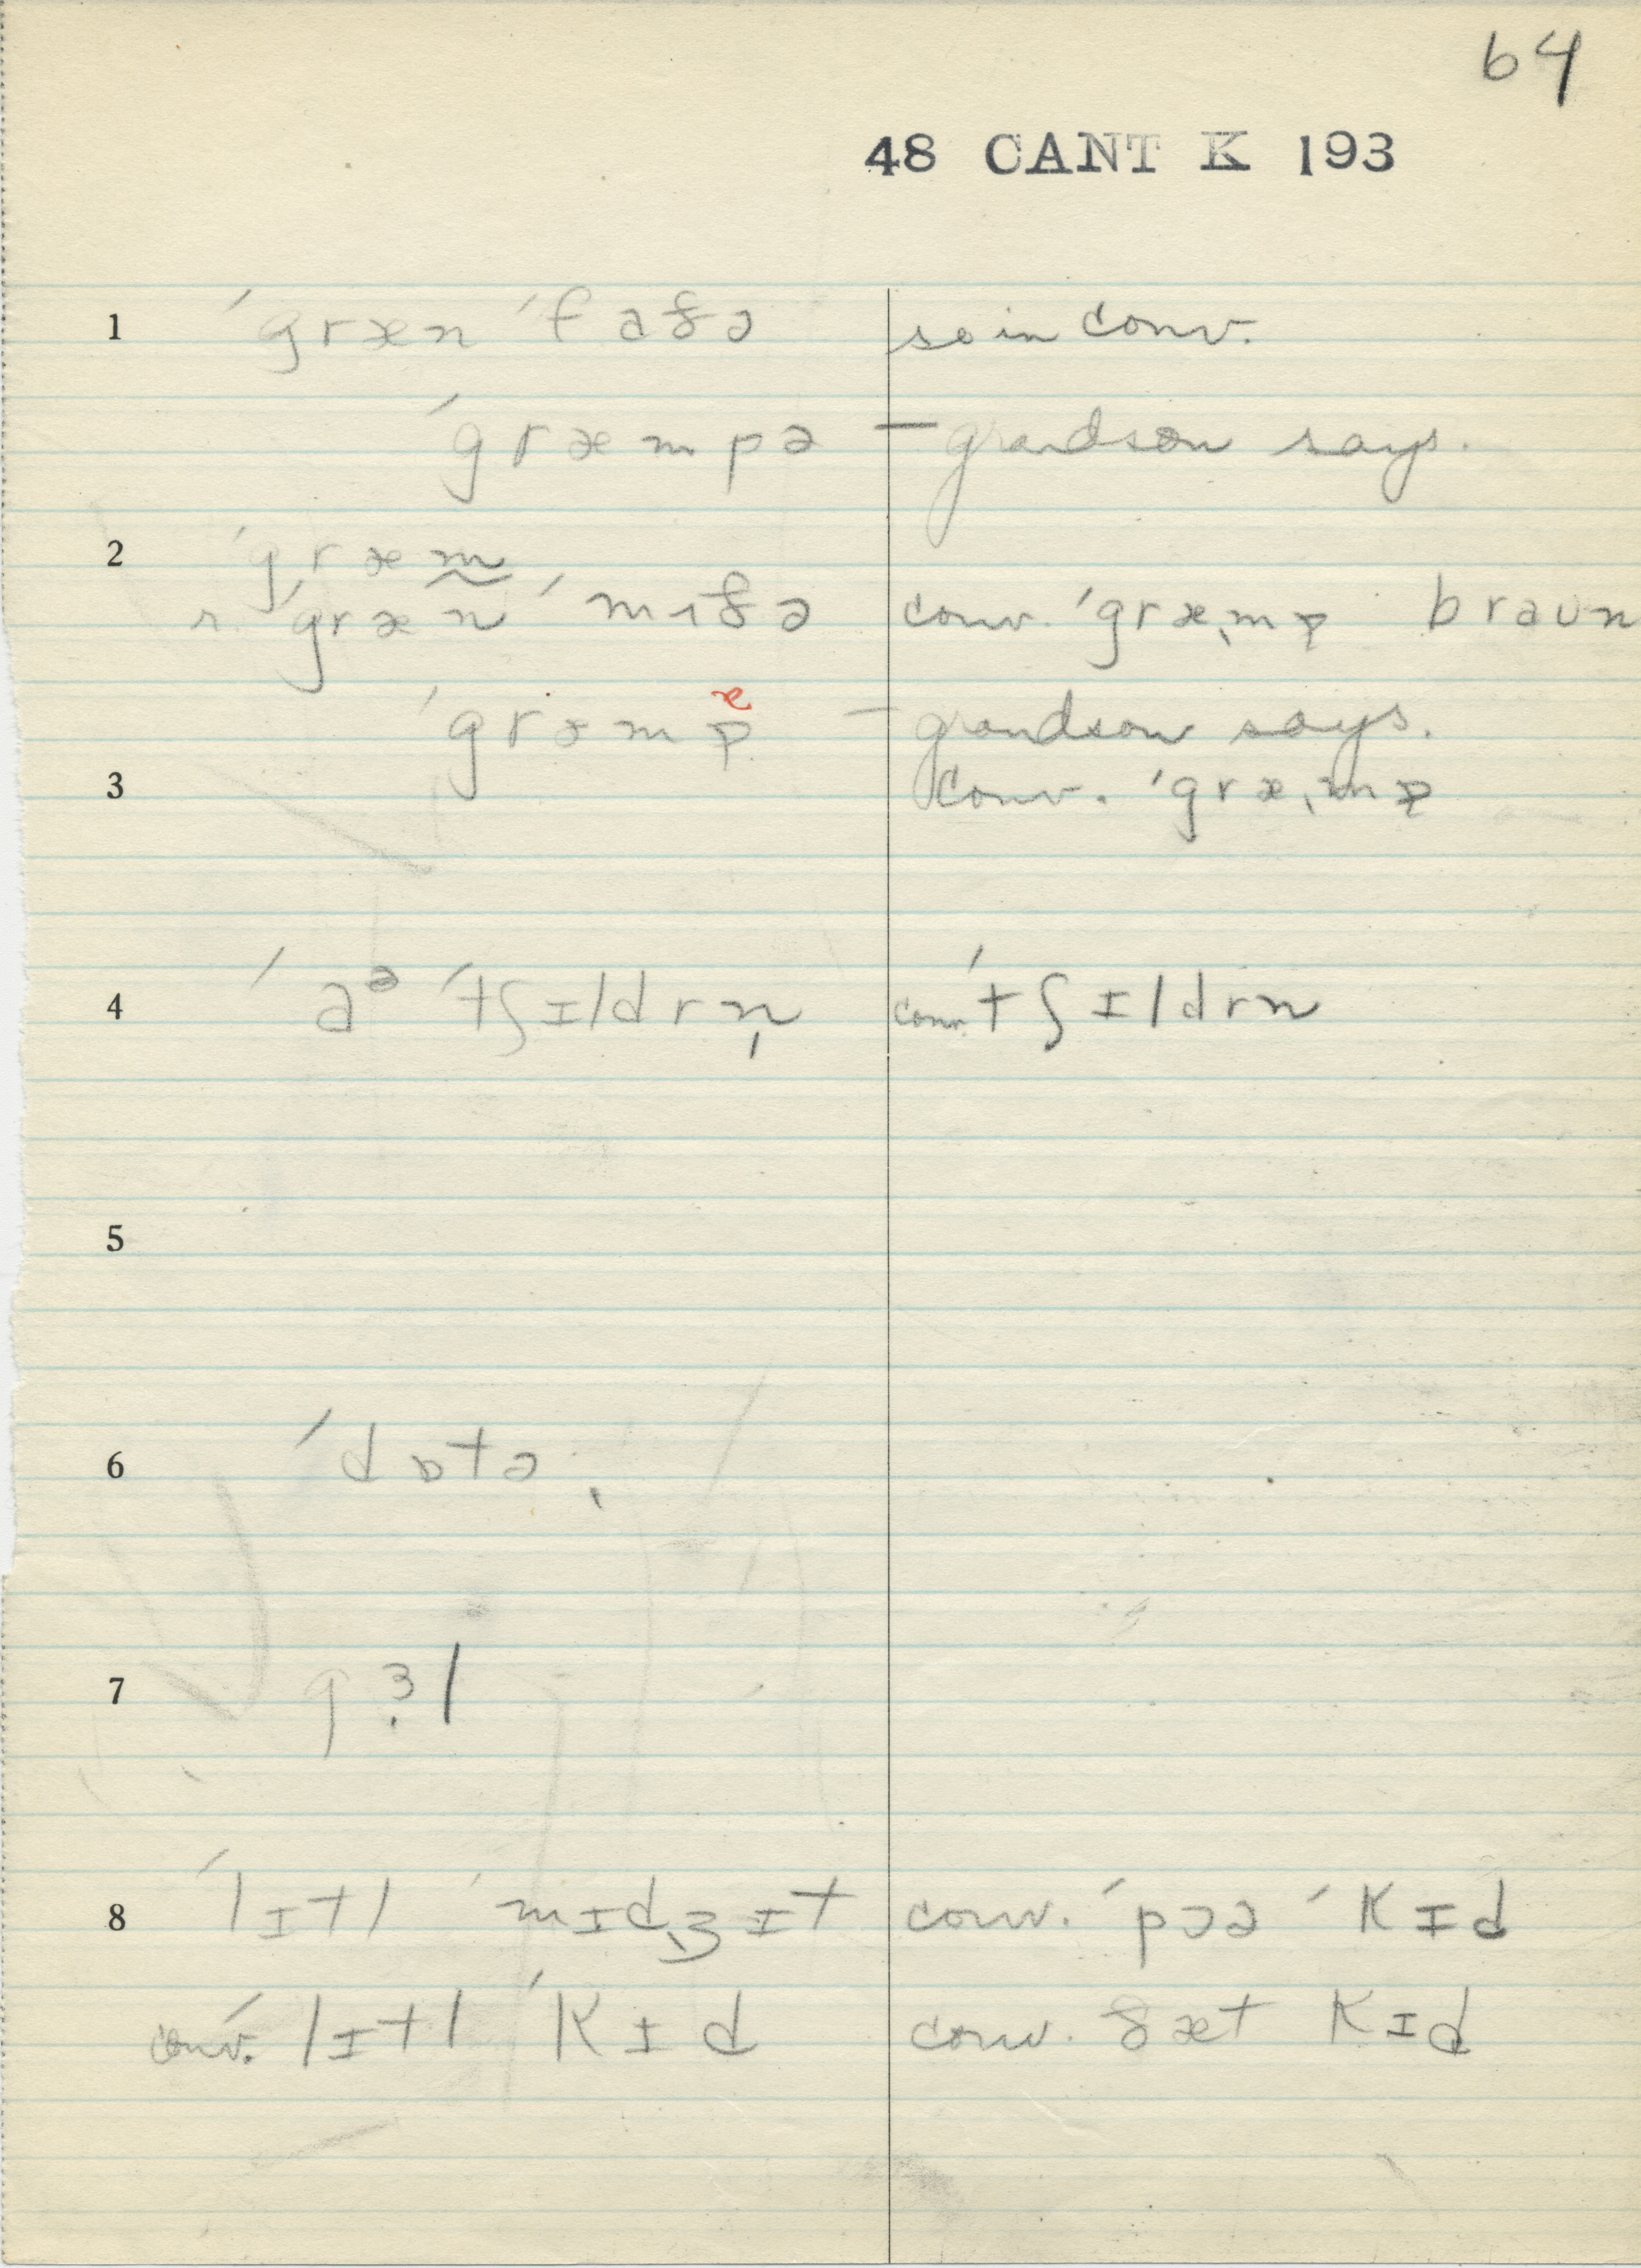 64
48 CANT K 193
1 ˈgræn ˈfaðə so in conv.
ˈgræmpə — grandson says.
2 ˈgræm
r. ˈgræn ˈmʌðə conv. ˈgræˌmp braʊn
ˈgræmp — grandson says.
3 conv. ˈgræˌmp
4 ˈaᵊ ˈtʃɪldrn̩ conv. ˈtʃɪldrn
5
6 ˈdɒtə
7 gɜl
8 ˈlɪtl ˈmɪdʒɪt conv. ˈpɔə ˈkɪd
conv. ˈlɪtl ˈkɪd conv. ðæt kɪd